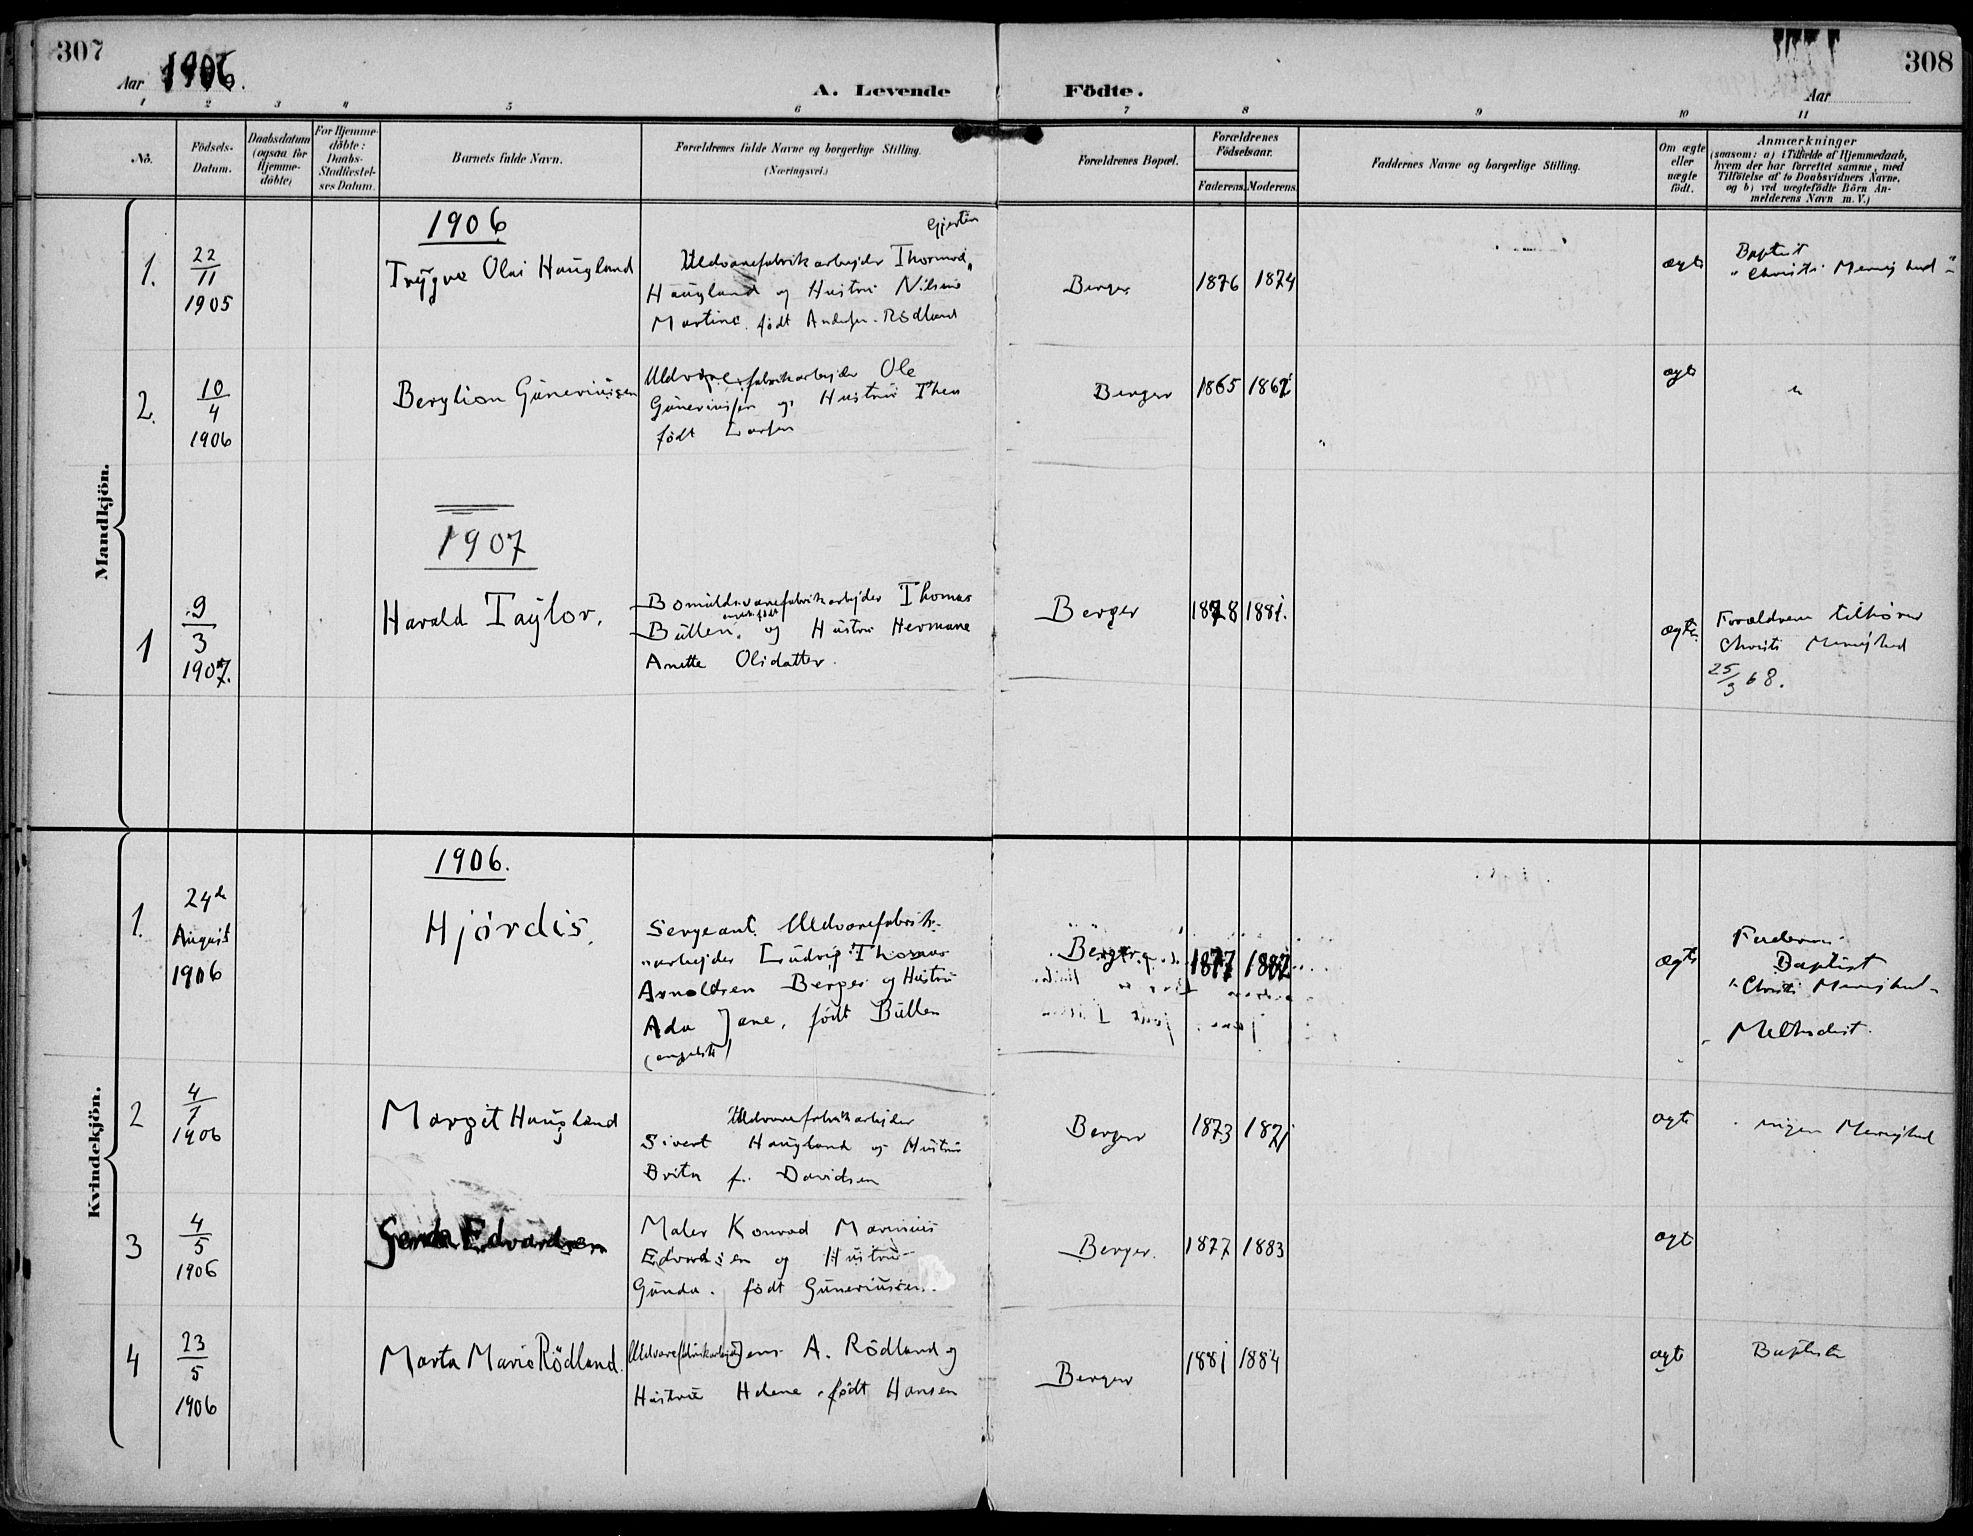 307
Aar 1906.
A. Levende Födte.
308
Aar
1 2 3 4 5 6 7 8 9 10 11
No.
Födsels-
Datum.
Daabsdatum
(ogsaa for
Hjemme-
döbte)
For Hjemme-
döbte:
Daabs-
Stadfæstel-
ses Datum.
Barnets fulde Navn.
Forældrenes fulde Navne og borgerlige Stilling.
(Næringsvei.)
Forældrenes Bopæl.
Forældrenes
Födselsaar.
Faderens. Moderens.
Faddernes Navne og borgerlige Stilling.
Om ægte
eller
uægte
födt.
Anmærkninger
(saasom: a) i Tilfælde af Hjemmedaab,
hvem der har forrettet samme, med
Tilföielse af to Daabsvidners Navne,
og b) ved uægtefödte Börn An-
melderens Navn m. V.)
Mandkjön.
1906
1.
22
11
1905
Trygve Olai Haugland
Gjertin
Uldvarefabrikarbejder Thormod
Haugland og Hustru Nilsine
Martine. født Andersen-Rødland
Berger
1876 1874
ægte
Baptist
"Christi Menighed"
2.
10
4
1906
Berylion Guneriussen
Uldvarefabrikarbejder Ole
Guneriussen og Hustru Thea
født Larsen
Berger
1865 1862
ægte
"
1907
1
9
3
1907.
Harald Taylor.
Bomuldsvarefabrikarbejder Thomas
Bullen, og Hustru Hermane
Anette Olsdatter.
Berger
1878 1881.
ægte
Forældrene tilhører
Christi Menighed
25/3 68.
Kvindekjön.
1906.
1.
24de
August
1906
Hjørdis.
Sergeant. Uldvarefabrik-
arbejder Ludvig Thomas
Arnoldsen Berger og Hustru
Ada Jane, født Bullen
(engelsk)
Berger
1877 1882
ægte
Faderen
Baptist
"Christi Menighed"
Methodist.
2
4
1
1906
Margit Haugland
Uldvarefabrikarbejder
Sivert Haugland og Hustru
Brita f. Davidsen
Berger
1873 1871
ægte
ingen Menighed
3
4
5
1906
Gerda Edvardsen
Maler Konrad Marinius
Edvardsen og Hustru
Gunda. født Guneriussen.
Berger.
1877 1883
ægte
4
23
5
1906
Marta Marie Rödland.
Uldvarefabrikarbejder Jens A. Rödland og
Hustru Helene født Hansen
Berger
1881 1884
ægte
Baptister